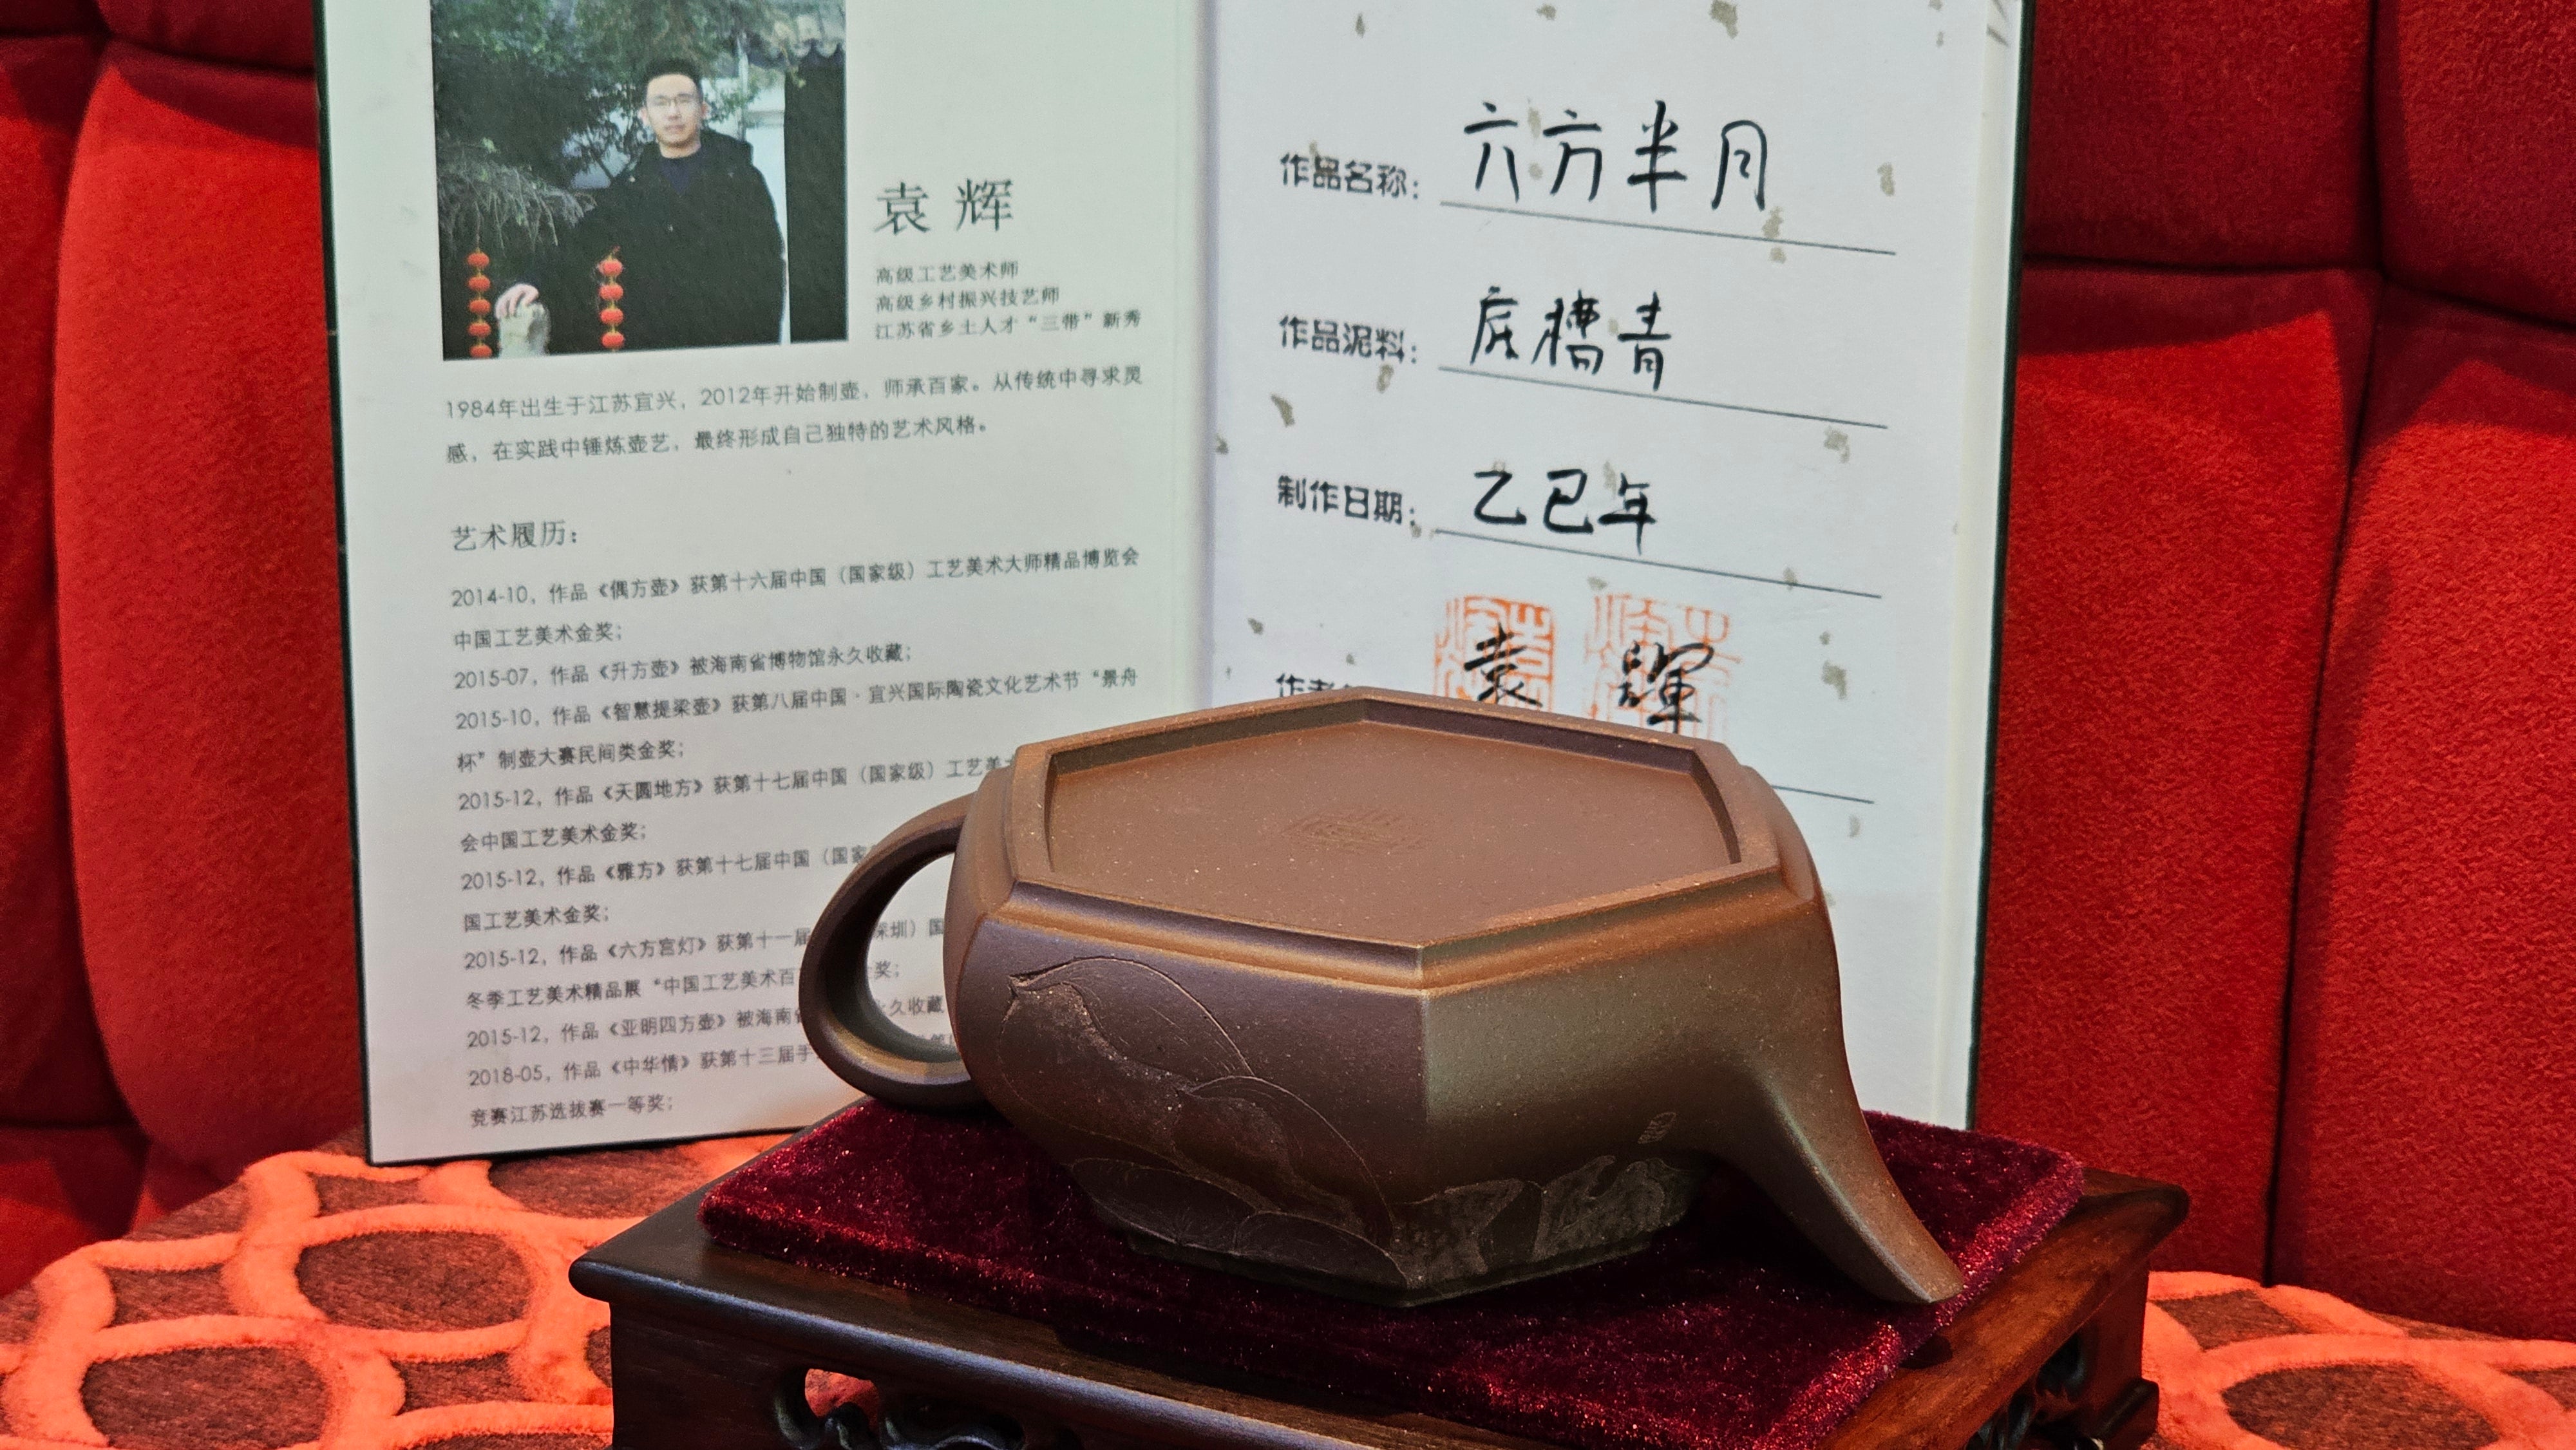 袁辉
高级工艺美术师
高级乡村振兴技艺师
江苏省乡土人才“三带”新秀
1984年出生于江苏宜兴，2012年开始制壶，师承百家。从传统中寻求灵
感，在实践中锤炼壶艺，最终形成自己独特的艺术风格。
艺术履历：
2014-10，作品《偶方壶》获第十六届中国（国家级）工艺美术大师精品博览会
中国工艺美术金奖；
2015-07，作品《升方壶》被海南省博物馆永久收藏；
2015-10，作品《智慧提梁壶》获第八届中国·宜兴国际陶瓷文化艺术节“景舟
杯”制壶大赛民间类金奖；
2015-12，作品《天圆地方》获第十七届中国（国家级）工艺美
会中国工艺美术金奖；
2015-12，作品《雅方》获第十七届中国（国家
国工艺美术金奖；
2015-12，作品《六方宫灯》获第十一届 深圳）国
冬季工艺美术精品展“中国工艺美术百 金奖；
2015-12，作品《亚明四方壶》被海南省 永久收藏
2018-05，作品《中华情》获第十三届手
竞赛江苏选拔赛一等奖；
作品名称：六方半月
作品泥料：底槽青
制作日期：乙巳年
作者 袁輝